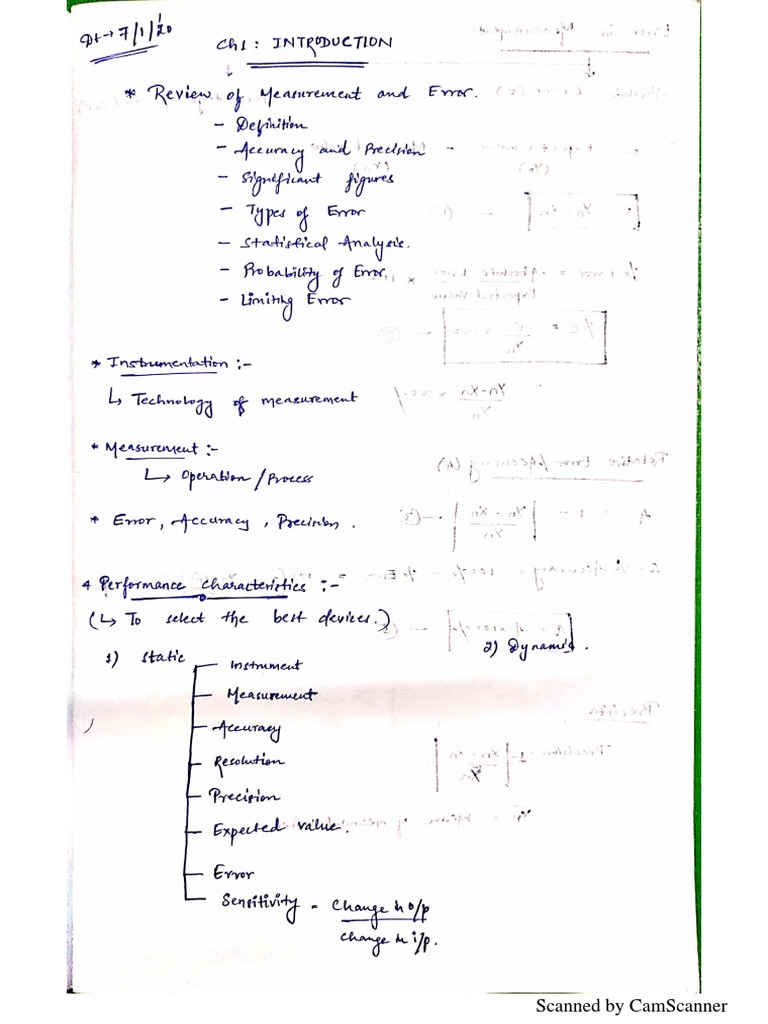 Dt→ 7/1/20
Ch1: INTRODUCTION
* Review of Measurement and Error.
– Definition
– Accuracy and Precision
– Significant figures
– Types of Error
– Statistical Analysis.
– Probability of Error
– Limiting Error
* Instrumentation :-
↳ Technology of measurement
* Measurement :-
↳ Operation / Process
* Error, Accuracy, Precision.
* Performance Characteristics :-
(↳ To select the best devices.)
1) Static
2) Dynamic.
Instrument
Measurement
Accuracy
Resolution
Precision
Expected value.
Error
Sensitivity = Change in o/p
Change in i/p.
Scanned by CamScanner